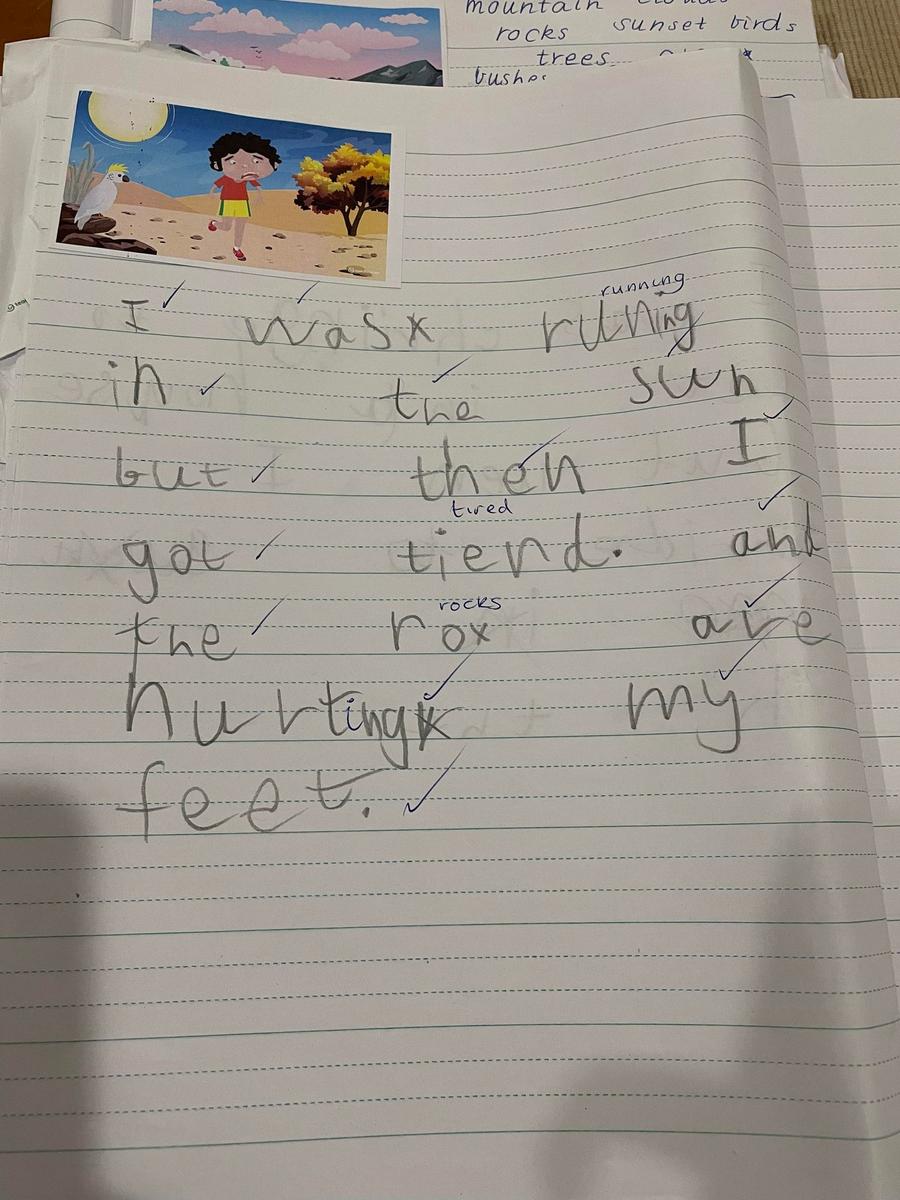 mountain
rocks sunset birds
trees
I was running
runing
in the sun
but then I
tired
got tiend. and
rocks
the rox are
hurting my
feet.